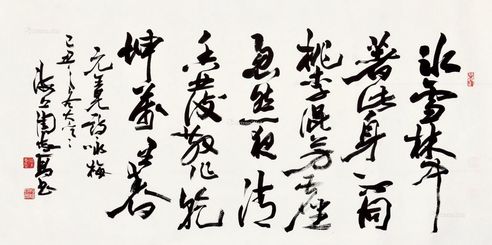 冰雪林中
著此身不同
桃李混芳塵
忽然一夜清
香發散作乾
坤萬里春
元王冕詩咏梅
己丑之冬大雪
海上陶書